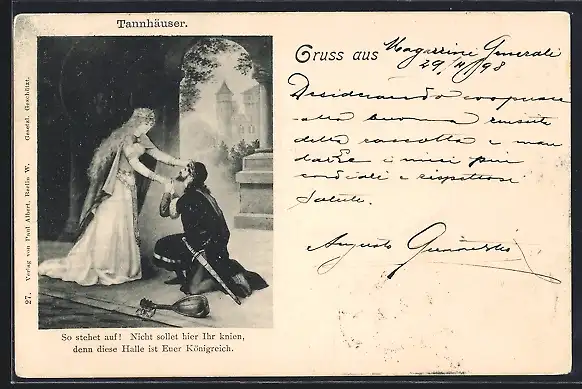 Tannhäuser.
Gruss aus Magazzini Generali
29/11/98
Desiderando cooperare
alla buona riuscita
della raccolta e man
darLe i miei più
cordiali e rispettosi
Saluti.
Augusto
27. Verlag von Paul Albert, Berlin W. Gesetzl. Geschützt.
So stehet auf! Nicht sollet hier Ihr knien,
denn diese Halle ist Euer Königreich.